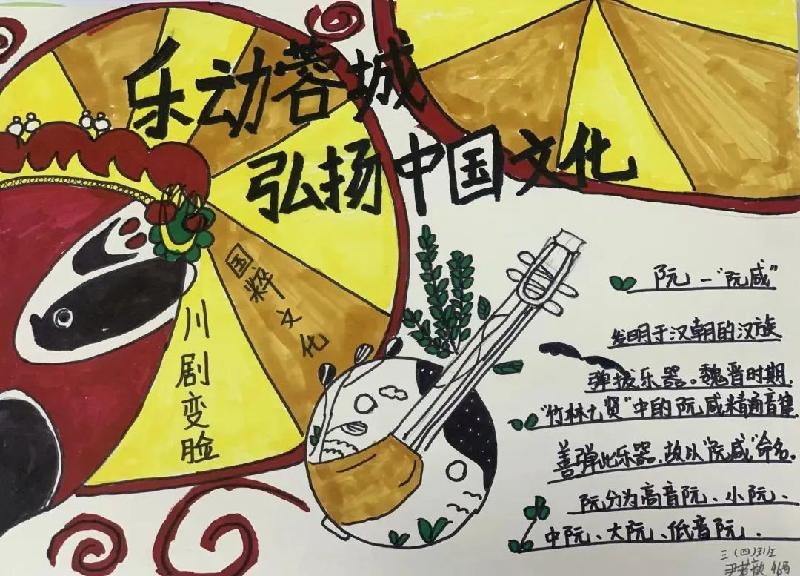 乐动蓉城
弘扬中国文化
国粹文化
川剧变脸
阮—“阮咸”
发明于汉朝的汉族
弹拨乐器。魏晋时期,
“竹林七贤”中的阮咸精通音律
善弹此乐器,故以“阮咸”命名。
阮分为高音阮、小阮、
中阮、大阮、低音阮.
三(四)班